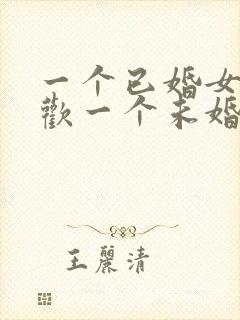 一个已婚女
歡一个未婚
王麗清